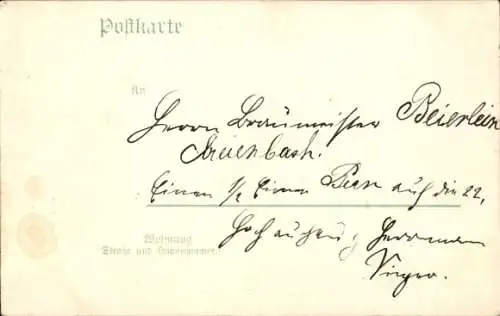 Postkarte
An
Herrn Braumeister Beierlein
Einen 1/2 Eimer Bier auf die 22,
Wohnung
(Straße und Hausnummer)
Hochachtung Herrmann